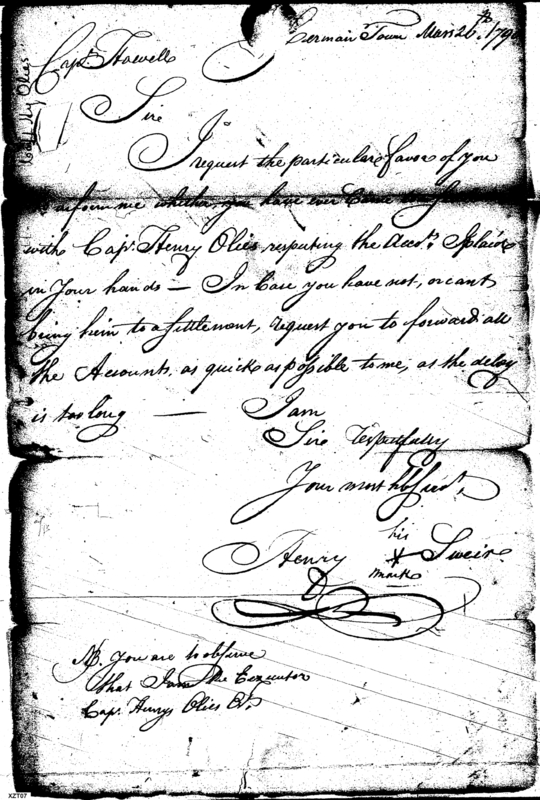 German Town Mar: 26th. 179
Capt. Howell
Sire
I request the particulare favor of you
inform me whether you have ever Come
with Capt. Henry Olies, respecting the Accots. I plaid
in Your hands — In Case you have not, or cant
bring him to a settlement, request you to forward all
the Accounts, as quick as possible to me, as the delay
is too long — I am
Sire respectfully
Your most hbl servt.
his
Henry X Sweir
mark
NB. You are to observe
that I am the Executor
Capt. Henry Olies Et.
XZT07